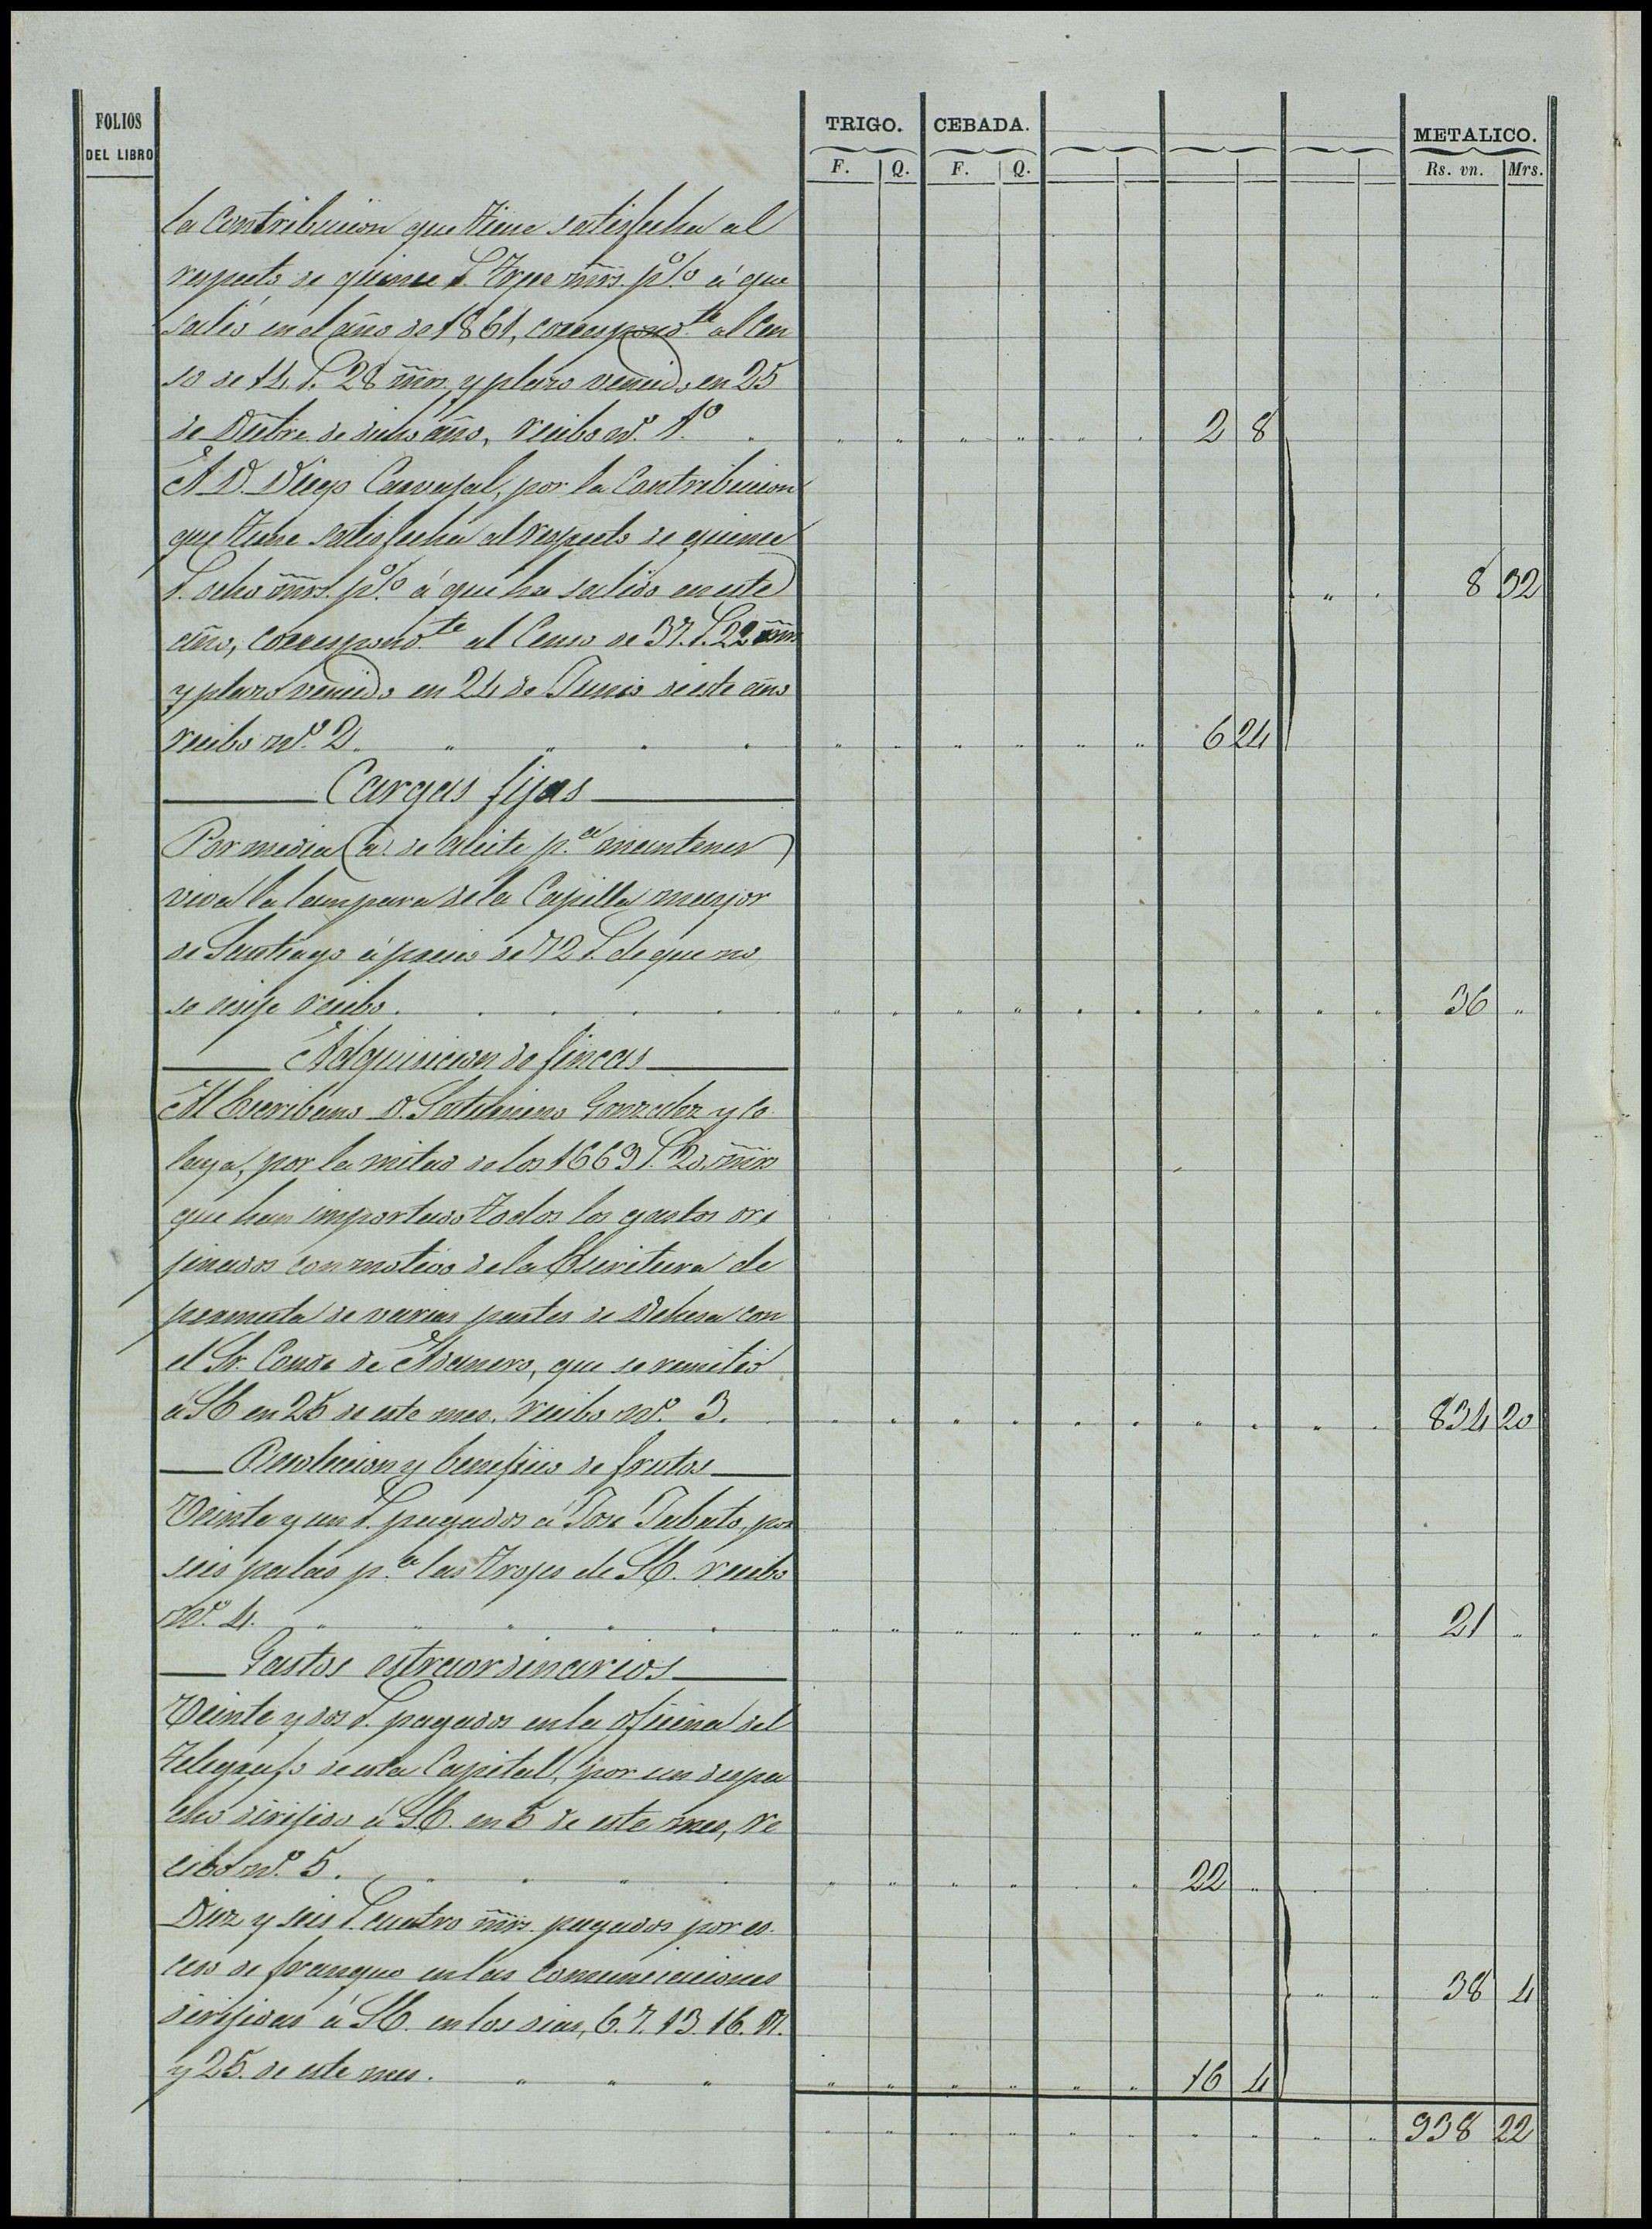 FOLIOS
DEL LIBRO
TRIGO. CEBADA. METALICO.
F. Q. F. Q. Rs. vn. Mrs.
la Contribucion que tiene satisfecha al
respecto de quince r. trece mrs. p% á que
salió en el año de 1861, correspondte al Cen
so de 14 r. 28 mrs. y plazo vencido en 25
de Dicbre de dicho año, recibo nº. 1º 2 8
A D. Diego Carvajal, por la Contribucion
que tiene satisfecha al respecto de quince
r. ocho mrs. p% á que ha salido en este 8 32
año, correspondte al Censo de 37. r. 22 mrs
y plazo vencido en 24 de Junio de este año
recibo nº. 2. 6 24
Cargas fijas
Por media a. de aceite p.a mantener
viva la lampara de la Capilla mayor
de Santiago á precio de 72 r. de que no
se exije recibo. 36
Adquisicion de fincas
Al Escribano D. Saturnino Gonzalez y Ce
laya, por la mitad de los 1669 r. 20 mrs
que han importado todos los gastos ori
jinados con motivo de la Escritura de
permuta de varias partes de Dehesa con
el Sr. Conde de Adanero, que se remitió
á SE en 25 de este mes. recibo nº. 3. 834 20
Recoleccion y beneficio de frutos
Veinte y un r. pagados á Jose Jabato, por
seis palas p.a las trojes de SE. recibo
nº. 4. 21
Gastos estraordinarios
Veinte y dos r. pagados en la oficina del
telegrafo de esta Capital, por un despa
cho dirijido á SE. en 5 de este mes, re
cibo nº. 5. 22
Diez y seis r. cuatro mrs. pagados por es
ceso de franqueo en las comunicaciones 38 4
dirijidas á SE. en los dias, 6. 7. 13. 16. 17.
y 25. de este mes. 16 4
938 22